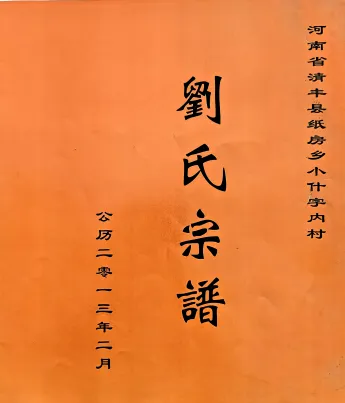 河南省清丰县纸房乡小什字内村
劉氏宗譜
公历二零一三年二月